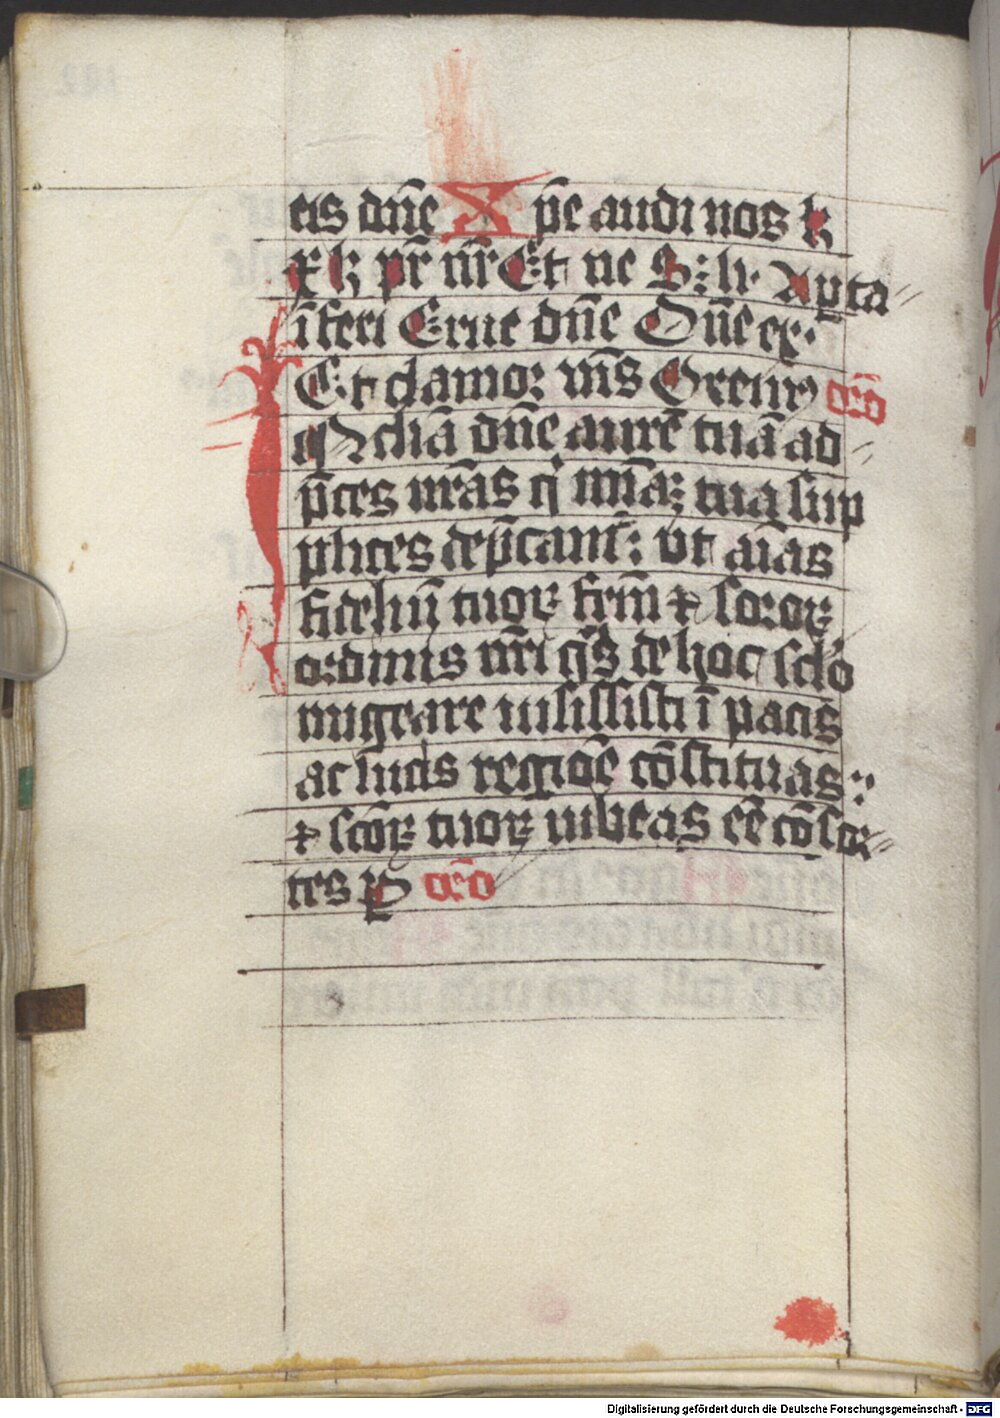 eis dn̄e Xp̄e audi nos k
x k pr̄ nr̄ Et ne S: li· A pta
īferi Erue dn̄e Dn̄e ex·
Et clamor m̄s Orem⁹ orō
Inclīa dn̄e aurē tuā ad
p̄ces nr̄as q mīaꝫ tuā sup
plices dep̄cam̄: ut aīas
fideliū tuoꝝ frm̄ ⁊ soroꝝ
ordinis nr̄i q̄s de hoc sclo
migrare iussisti ī pacis
ac lucis regiōe cōstituas:
⁊ scōꝝ tuoꝝ iubeas eē cōsor
tes P orō
Digitalisierung gefördert durch die Deutsche Forschungsgemeinschaft - DFG